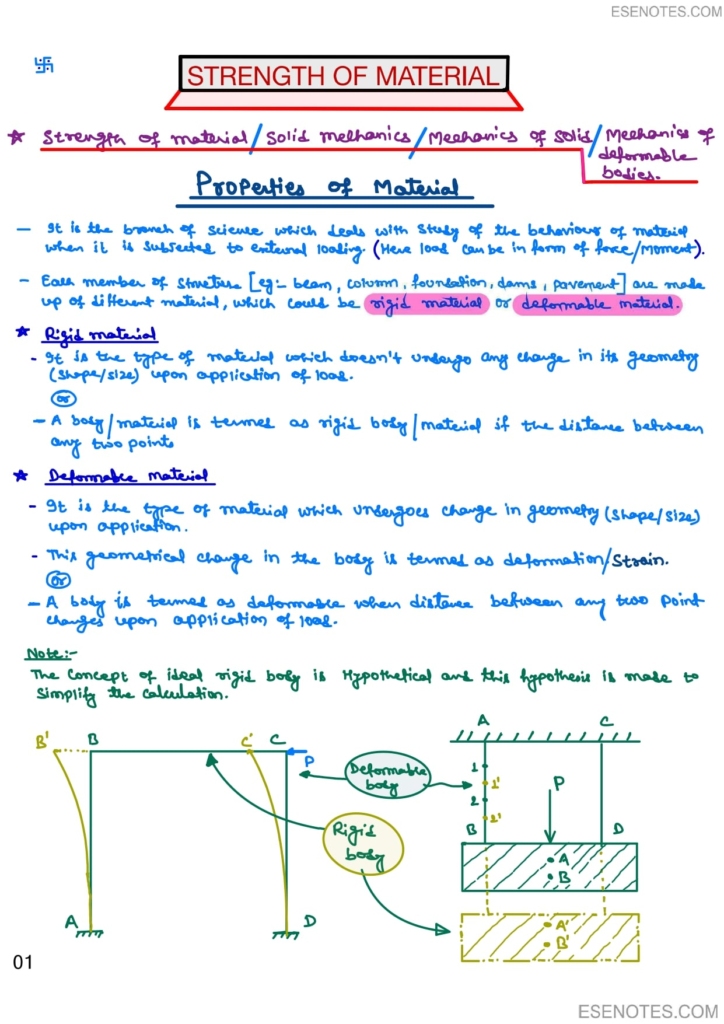 ESENOTES.COM
卐
STRENGTH OF MATERIAL
★ Strength of material/Solid mechanics/Mechanics of Solid/Mechanics of
deformable
bodies.
Properties of Material
– It is the branch of science which deals with study of the behaviour of material
when it is subjected to external loading. (Here load can be in form of force/moment).
– Each member of structure [eg:- beam, column, foundation, dams, pavement] are made
up of different material, which could be rigid material or deformable material.
★ Rigid material
- It is the type of material which doesn't undergo any change in its geometry
(shape/size) upon application of load.
or
– A body/material is termed as rigid body/material if the distance between
any two points
★ Deformable material
- It is the type of material which undergoes change in geometry (shape/size)
upon application.
- This geometrical change in the body is termed as deformation/Strain.
or
– A body is termed as deformable when distance between any two point
changes upon application of load.
Note:-
The concept of ideal rigid body is Hypothetical and this hypothesis is made to
simplify the calculation.
B' B C' C P
A D
Deformable
body
Rigid
body
A C
1
1'
2
2'
P
B D
A
B
A'
B'
01
ESENOTES.COM